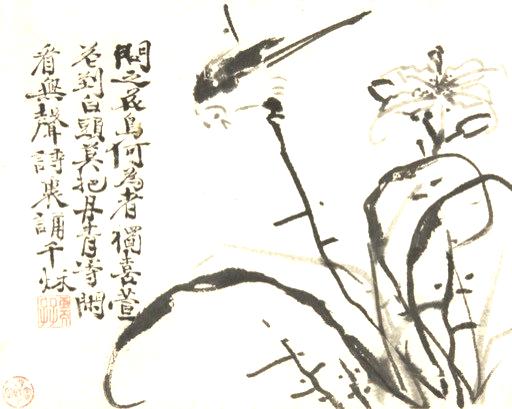 問之花鳥何為者獨喜萱
花到白頭莫把丹青等閒
看無聲詩裏誦千秋